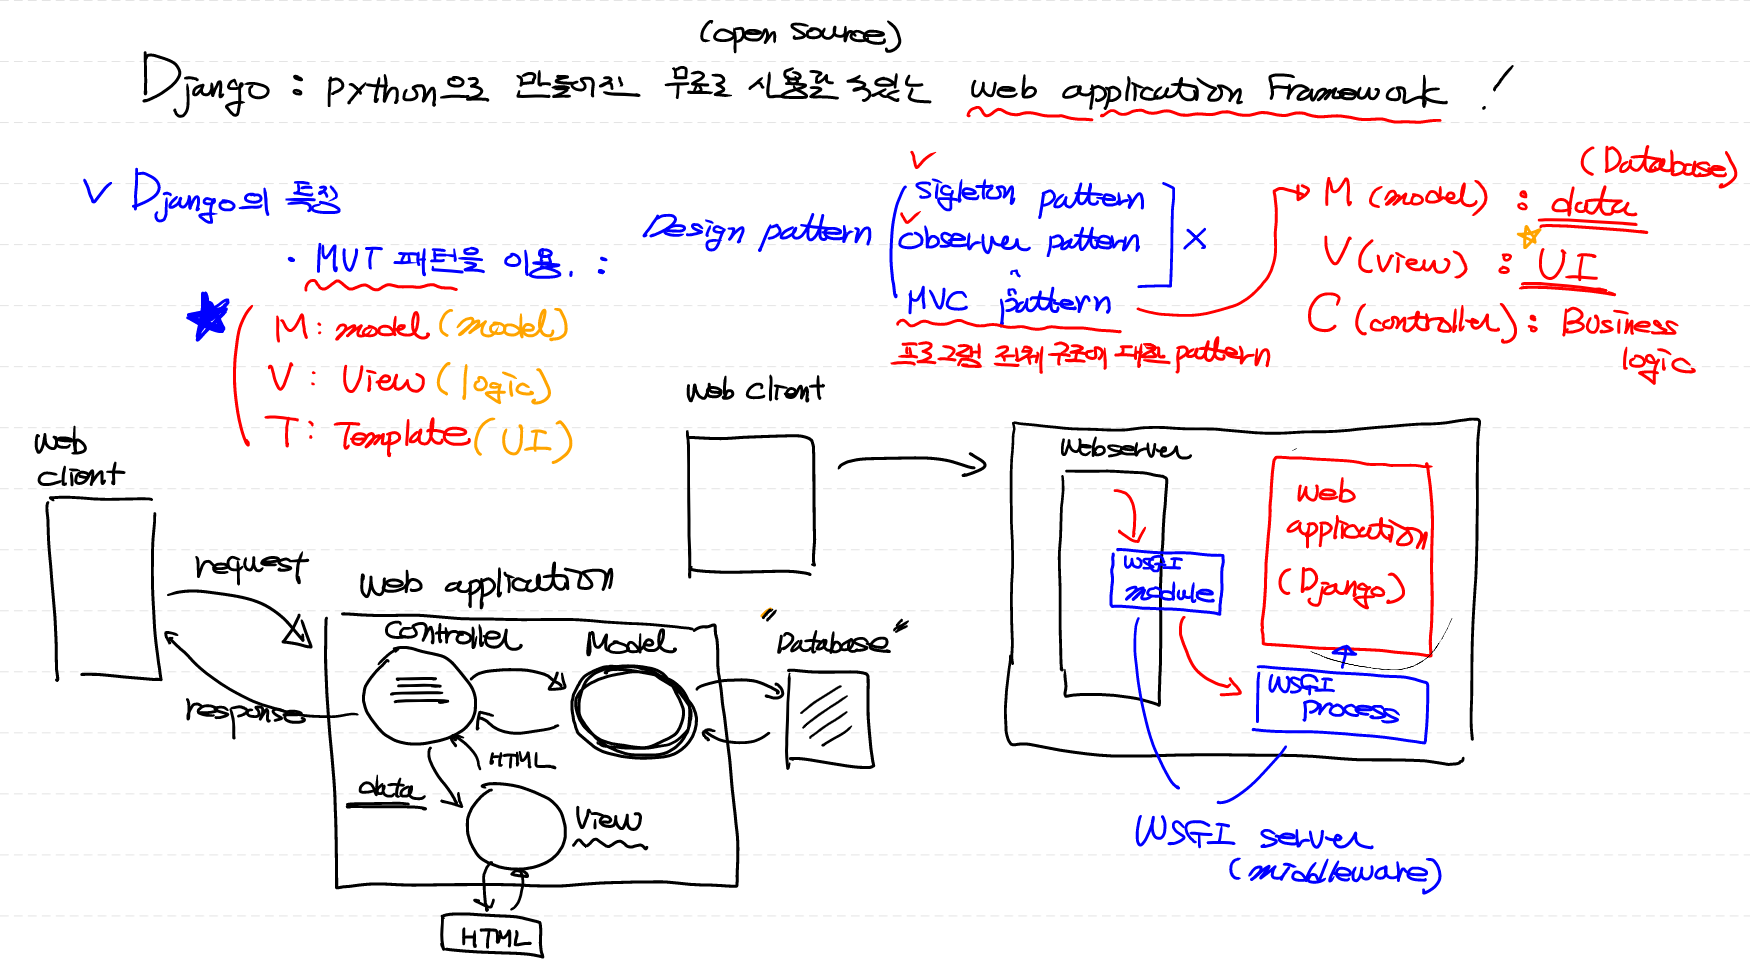 (open source)
Django : python으로 만들어진 무료로 사용할 수 있는 web application Framework !
v Django의 특징
· MVT 패턴을 이용. :
M : model (model)
V : View (logic)
T : Template (UI)
Design pattern
sigleton pattern
observer pattern
X
MVC pattern
프로그램 전체 구조에 대한 pattern
(Database)
M (model) : data
V (view) : UI
C (controller) : Business
logic
web
client
request
response
web application
controller
Model
"Database"
data
HTML
view
HTML
web client
webserver
WSGI
module
web
application
(Django)
WSGI
process
WSGI server
(middleware)